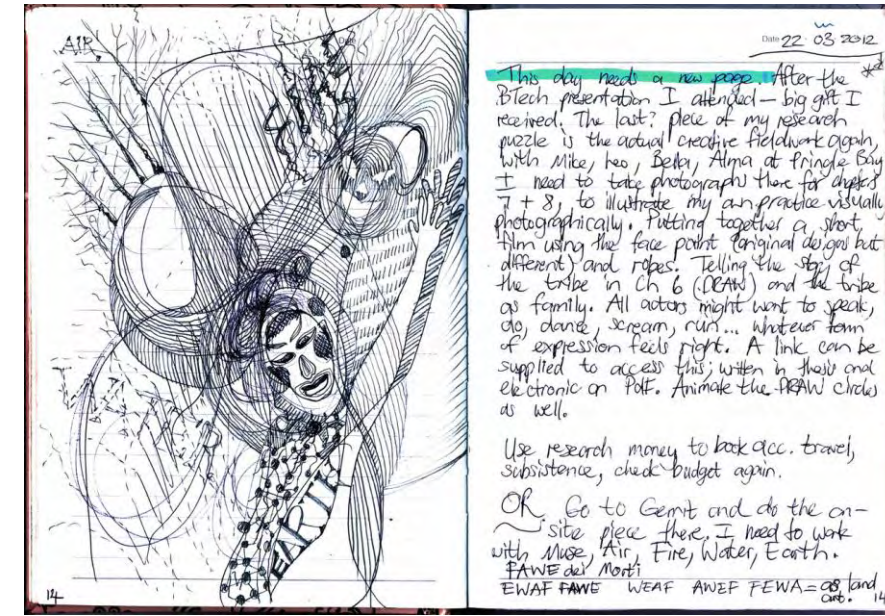 AIR
EARTH
14
Date 22 03 2012
This day needs a new page. After the
BTech presentation I attended – big gift I
received. The last? piece of my research
puzzle is the actual creative fieldwork again,
with Mike, Leo, Bella, Alma at Pringle Bay
I need to take photographs there for chapters
7 + 8, to illustrate my own practice visually
photographically. Putting together a short
film using the face paint (original designs but
different) and robes. Telling the story of
the tribe in Ch 6 (DRAW) and the tribe
as family. All actors might want to speak,
do, dance, scream, run... whatever form
of expression feels right. A link can be
supplied to access this; written in thesis and
electronic on Pdf. Animate the DRAW circles
as well.
Use research money to book acc. travel,
subsistence, check budget again.
OR Go to and do the on-
site piece there. I need to work
with Muse, Air, Fire, Water, Earth.
FAWE dei Morti
EWAF FAWE WEAF AWEF FEWA = as land
art.
14